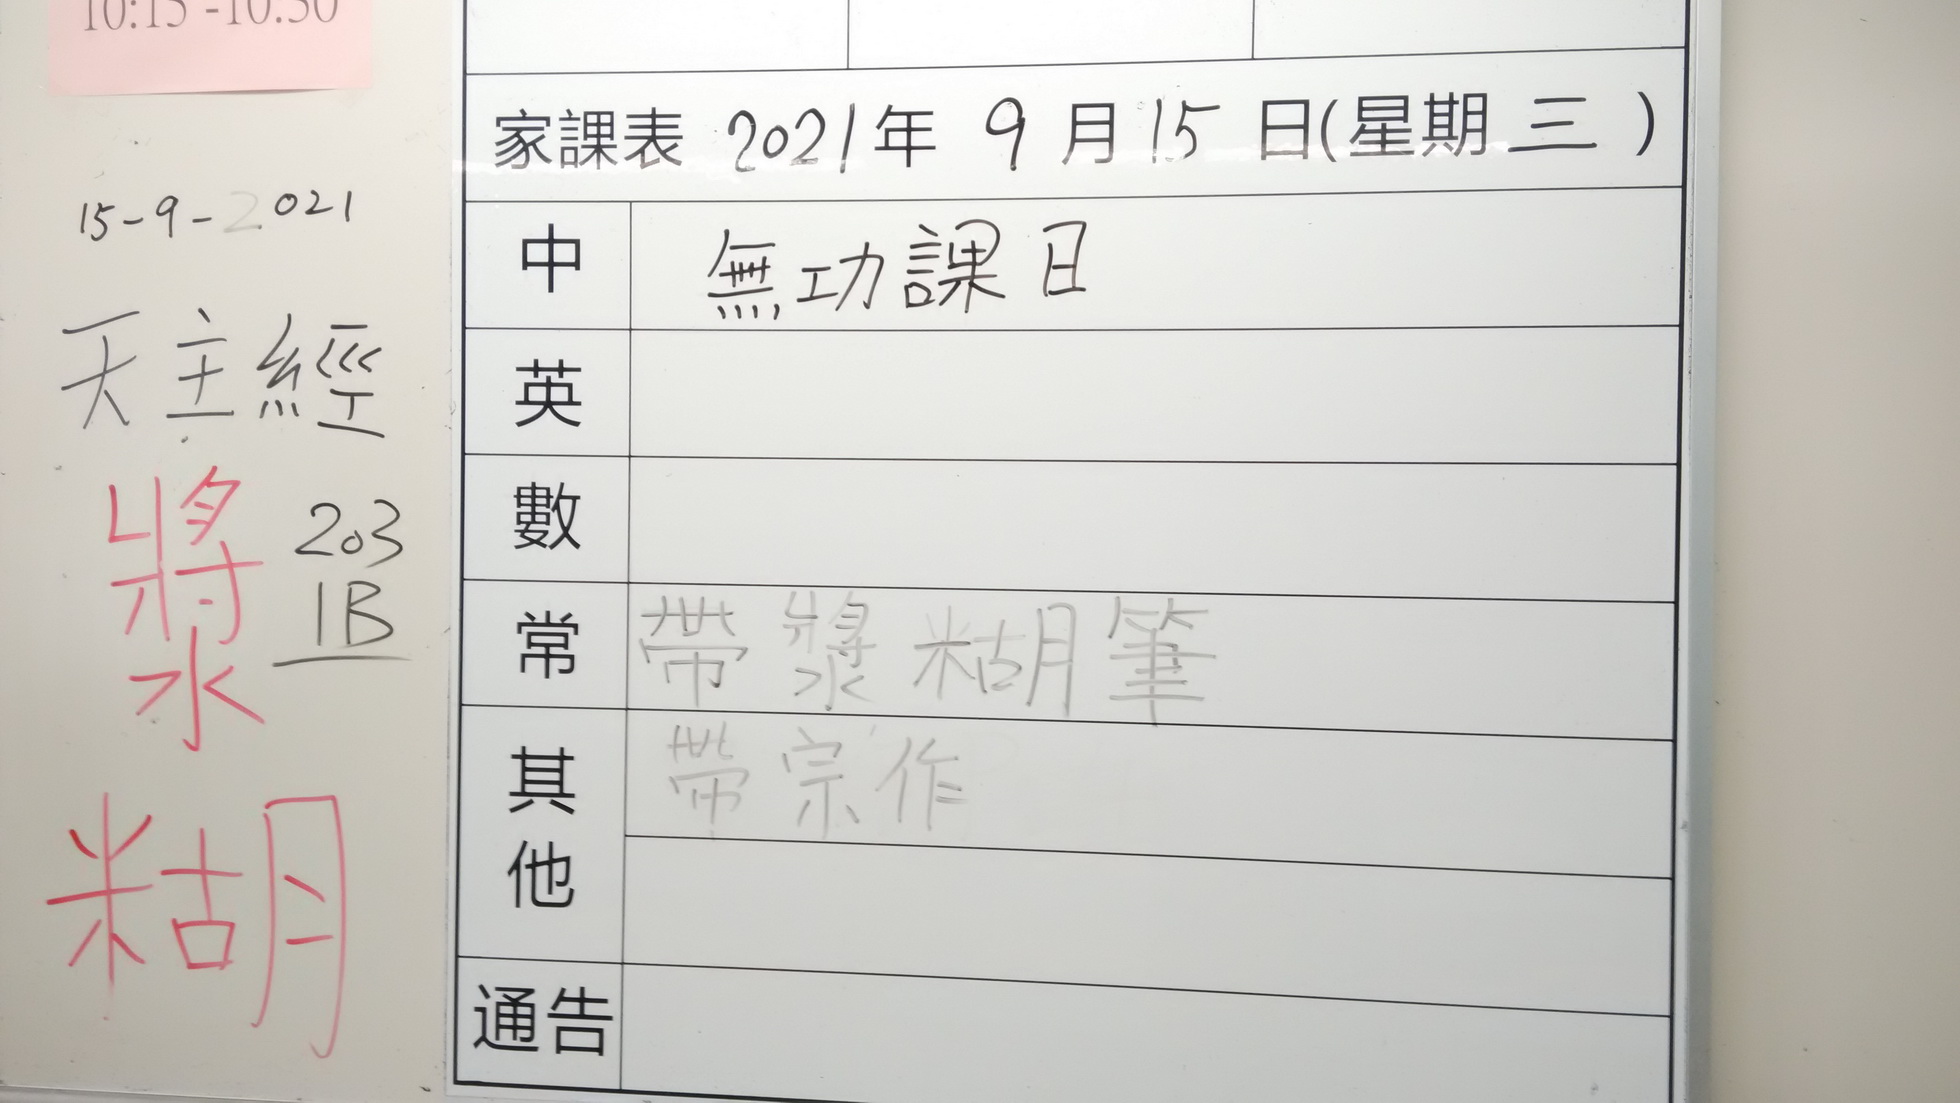 10:15 -10:30
15-9-2021
天主經
漿
糊
203
1B
家課表 2021年 9月15日(星期三)
中 無功課日
英
數
常 帶漿糊筆
其他 帶宗作
通告